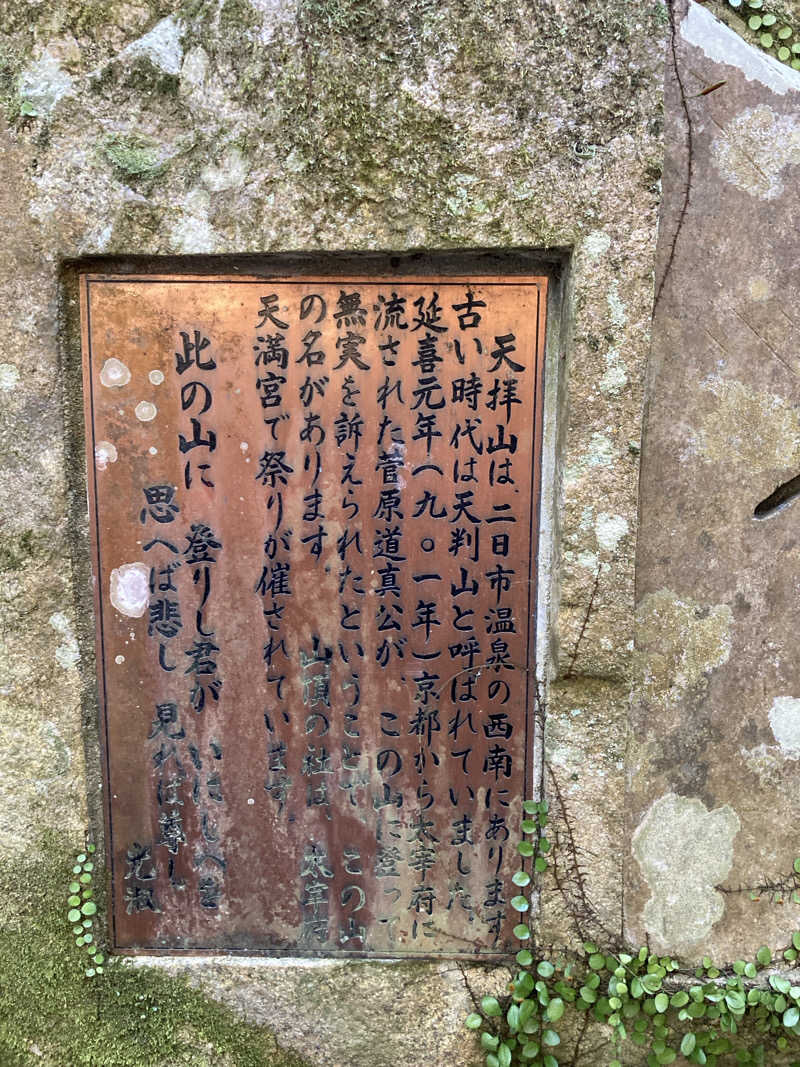 天拝山は、二日市温泉の西南にあります
古い時代は天判山と呼ばれていました。
延喜元年(九〇一年)京都から太宰府に
流された菅原道真公が、この山に登って
無実を訴えられたということで、この山
の名があります。山頂の社は、太宰府
天満宮で祭りが催されています。
此の山に 登りし君が いにしへを
思へば悲し 見れば尊し